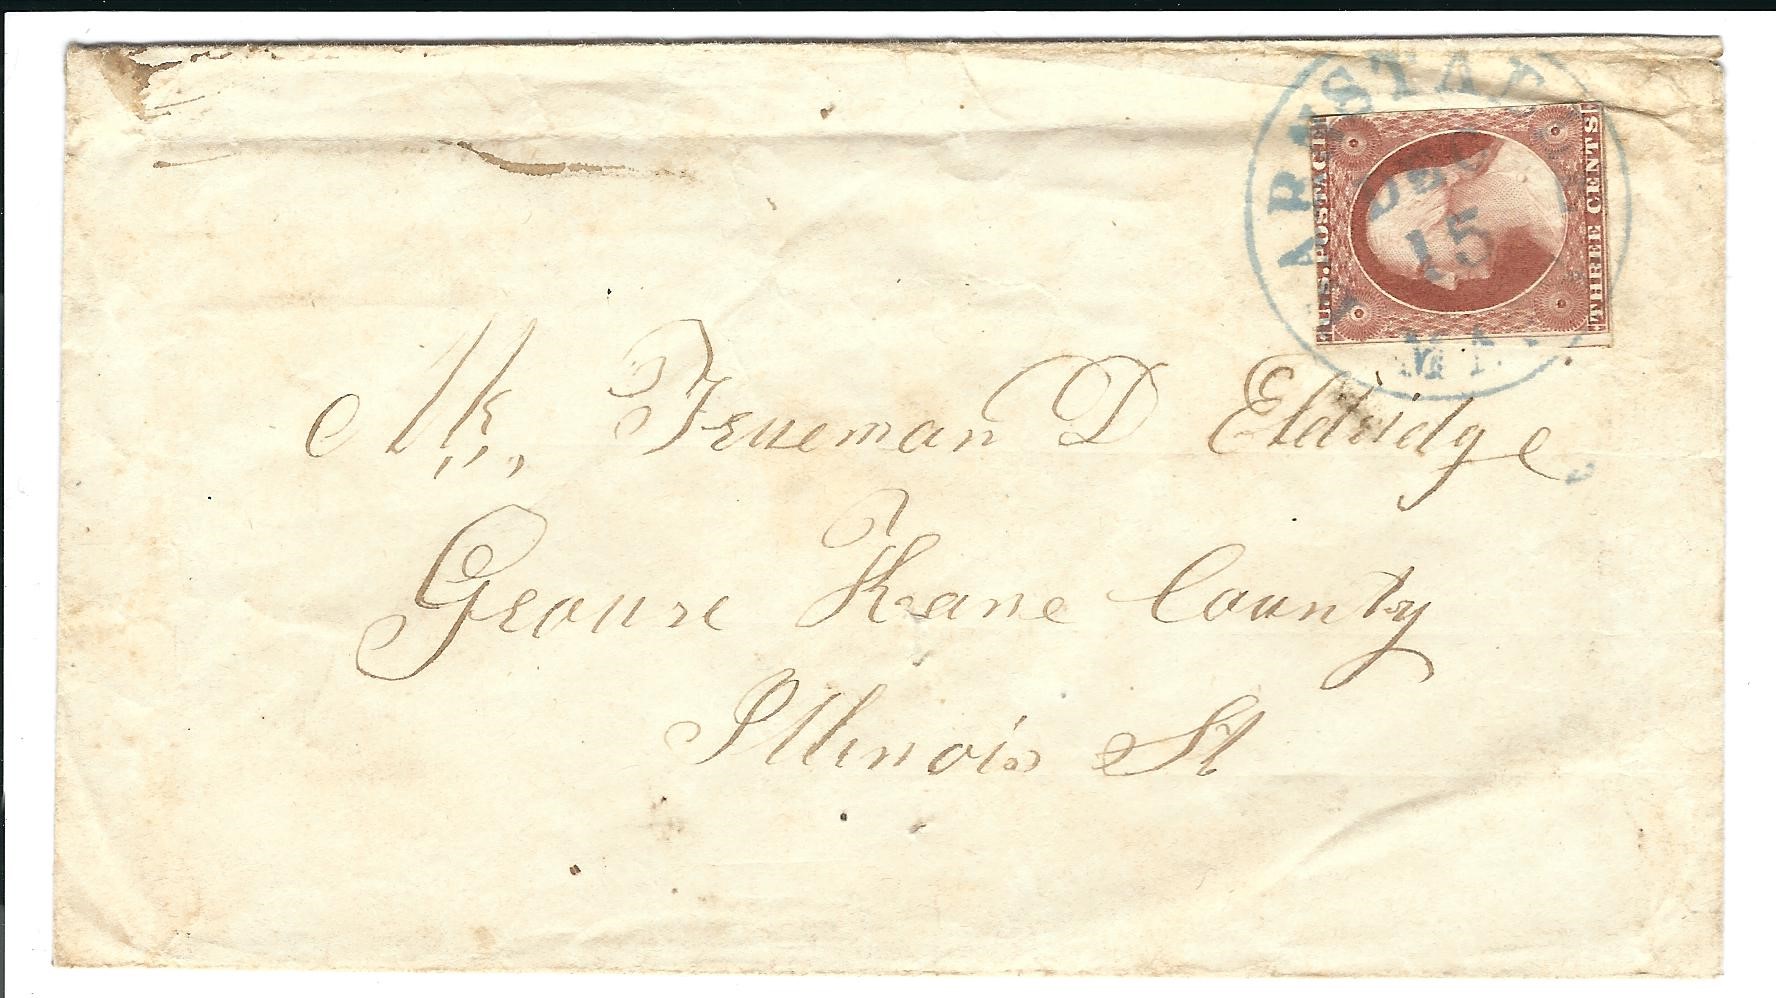 ARNSTAB
DEC
15
MA.
U.S. POSTAGE
THREE CENTS
Mr., Trueman D Eldridge
Grouse Kane County
Illinois St